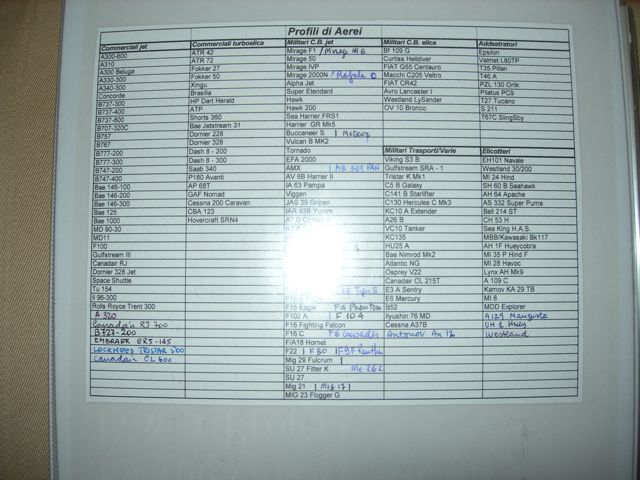 Profili di Aerei
Commerciali jet Commerciali turboelica Militari C.B. jet Militari C.B. elica Addestratori
A300-600 ATR 42 Mirage F1 / Mirage III E Bf 109 G Epsilon
A310 ATR 72 Mirage 50 Curtiss Helldiver Valmet L80TP
A300 Beluga Fokker 27 Mirage IVP FIAT G55 Centauro T35 Pillan
A330-300 Fokker 50 Mirage 2000N / Rafale C Macchi C205 Veltro T46 A
A340-300 Xingu Alpha Jet FIAT CR42 PZL 130 Orlik
Concorde Brasilia Super Etendard Avro Lancaster I Pilatus PC9
B737-300 HP Dart Herald Hawk Westland LySander T27 Tucano
B737-400 ATP Hawk 200 OV 10 Bronco S 211
B737-800 Shorts 360 Sea Harrier FRS1 T67C SlingSby
B707-320C Bae Jetstream 31 Harrier GR Mk5
B757 Dornier 228 Buccaneer S | Meteor
B767 Dornier 328 Vulcan B MK2
B777-200 Dash 8 - 200 Tornado Militari Trasporti/Varie Elicotteri
B777-300 Dash 8 - 300 EFA 2000 Viking S3 B EH101 Navale
B747-200 Saab 340 AMX | AB 339 PAN Gulfstream SRA - 1 Westland 30/200
B747-400 P180 Avanti AV 8B Harrier II Tristar K Mk1 MI 24 Hind
Bae 146-100 AP 68T IA 63 Pampa C5 B Galaxy SH 60 B Seahawk
Bae 146-200 GAF Nomad Viggen C141 B Starlifter AH 64 Apache
Bae 146-300 Cessna 200 Caravan JAS 39 Gripen C130 Hercules C Mk3 AS 332 Super Puma
Bae 125 CBA 123 IAR 93B KC10 A Extender Bell 214 ST
Bae 1000 Hovercraft SRN4 A26 B CH 53 H
MD 90-30 VC10 Tanker Sea King H.A.S.
MD11 KC135 MBB/Kawasaki Bk117
F100 HU25 A AH 1F Hueycobra
Gulfstream III Bae Nimrod Mk2 MI 35 P Hind F
Canadair RJ Atlantic NG MI 28 Havoc
Dornier 328 Jet Osprey V22 Lynx AH Mk9
Space Shuttle Canadian CL 215T A 109 C
Tu 154 E 3 Sentry Kamov KA 29 TB
Il 96-300 E6 Mercury MI 8
Rolls Royce Trent 300 F15 Eagle F4 Phantom B52 MDD Explorer
A 320 F102 A | F 104 Ilyushin 76 MD A129 Mangusta
Canadair RJ 700 F16 Fighting Falcon Cessna A37B UH 1 Huey
B727-200 F16 C F8 Crusader Antonov An 12 Westland
EMBRAER ERJ-145 F/A18 Hornet
LOCKHEED TRISTAR 500 F22 | F 80 | F9F Panther
Canadair CL 600 Mig 29 Fulcrum
SU 27 Fitter K Me 262
SU 27
Mig 21 | Mig 17 |
MIG 23 Flogger G